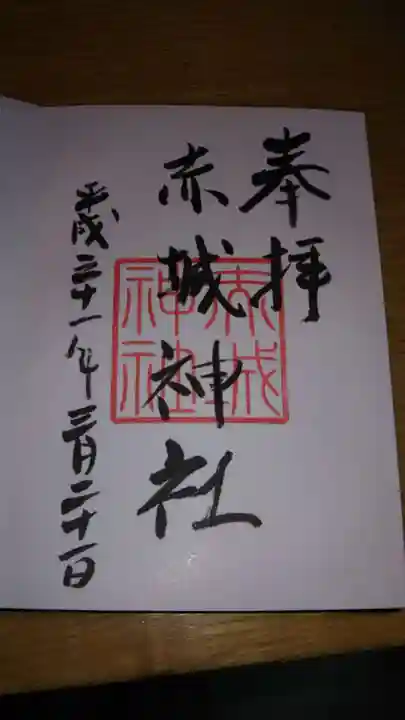 奉拝
赤城神社
平成二十一年三月二十一日
赤城
神社